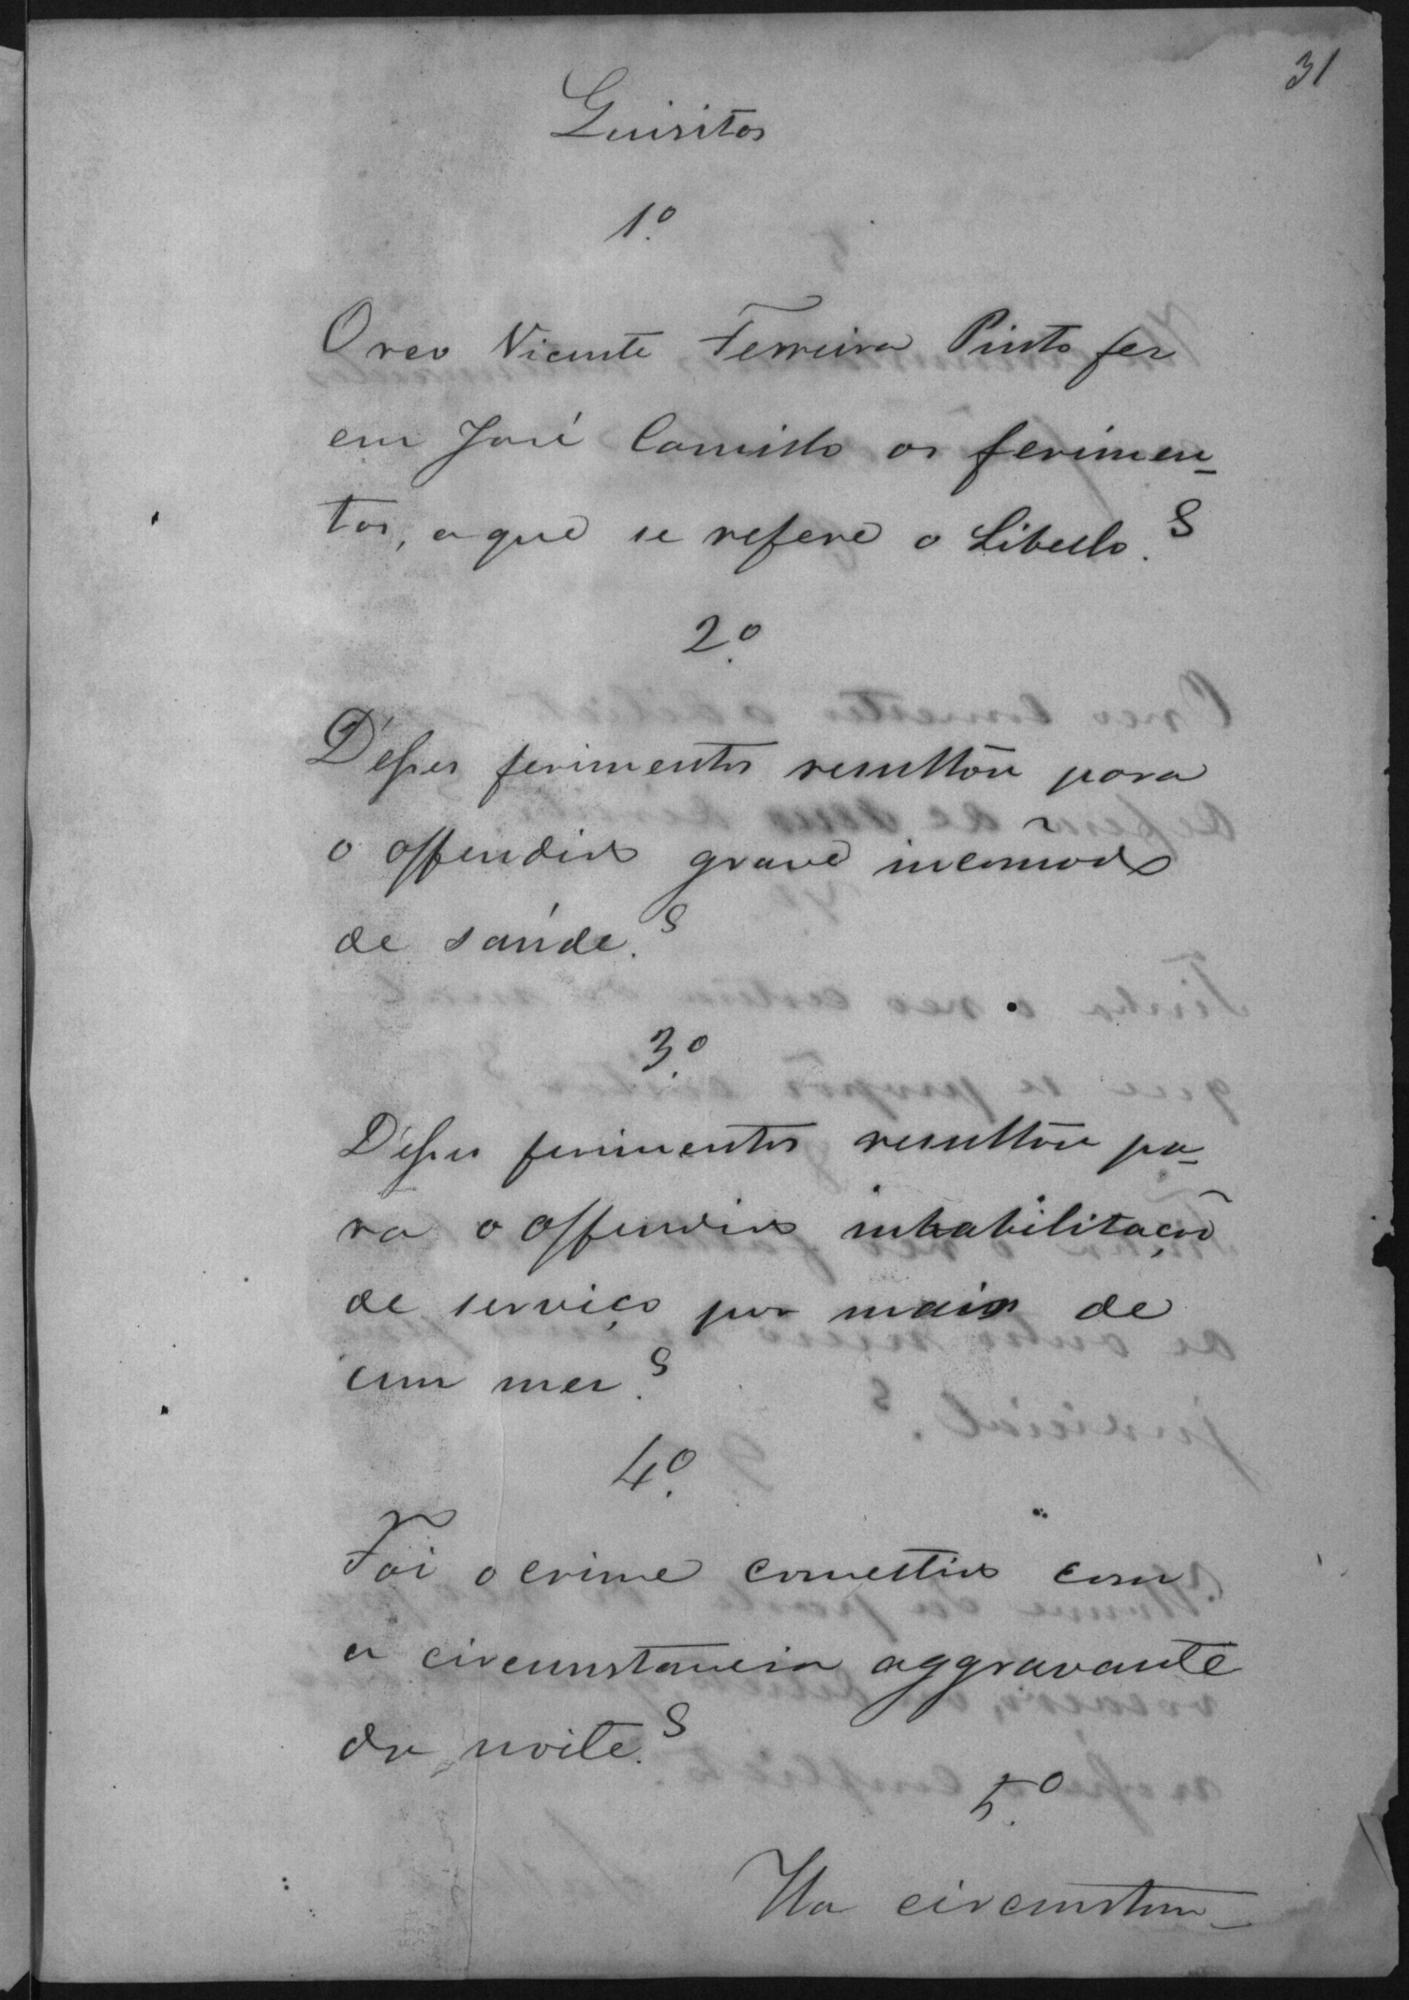 31
Quisitos
1.º
O reo Vicente Ferreira Pinto fez
em José Camillo os ferimen-
tos, a que se refere o Libello?
2.º
D'esses ferimentos resultou para
o offendido grave incommodo
de saúde?
3.º
D'esses ferimentos resultou pa-
ra o offendido inhabilitação
de serviço por mais de
um mez?
4.º
Foi o crime comettido com
a circunstancia aggravante
da noite?
5.º
Ha circunstan-